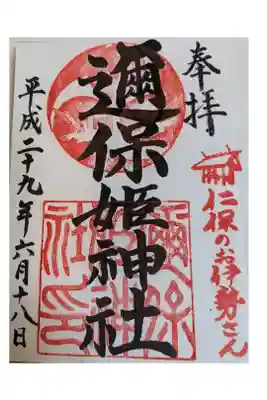 奉拝
仁保のお伊勢さん
邇保姫神社
平成二十九年六月十八日
邇保姫神社印